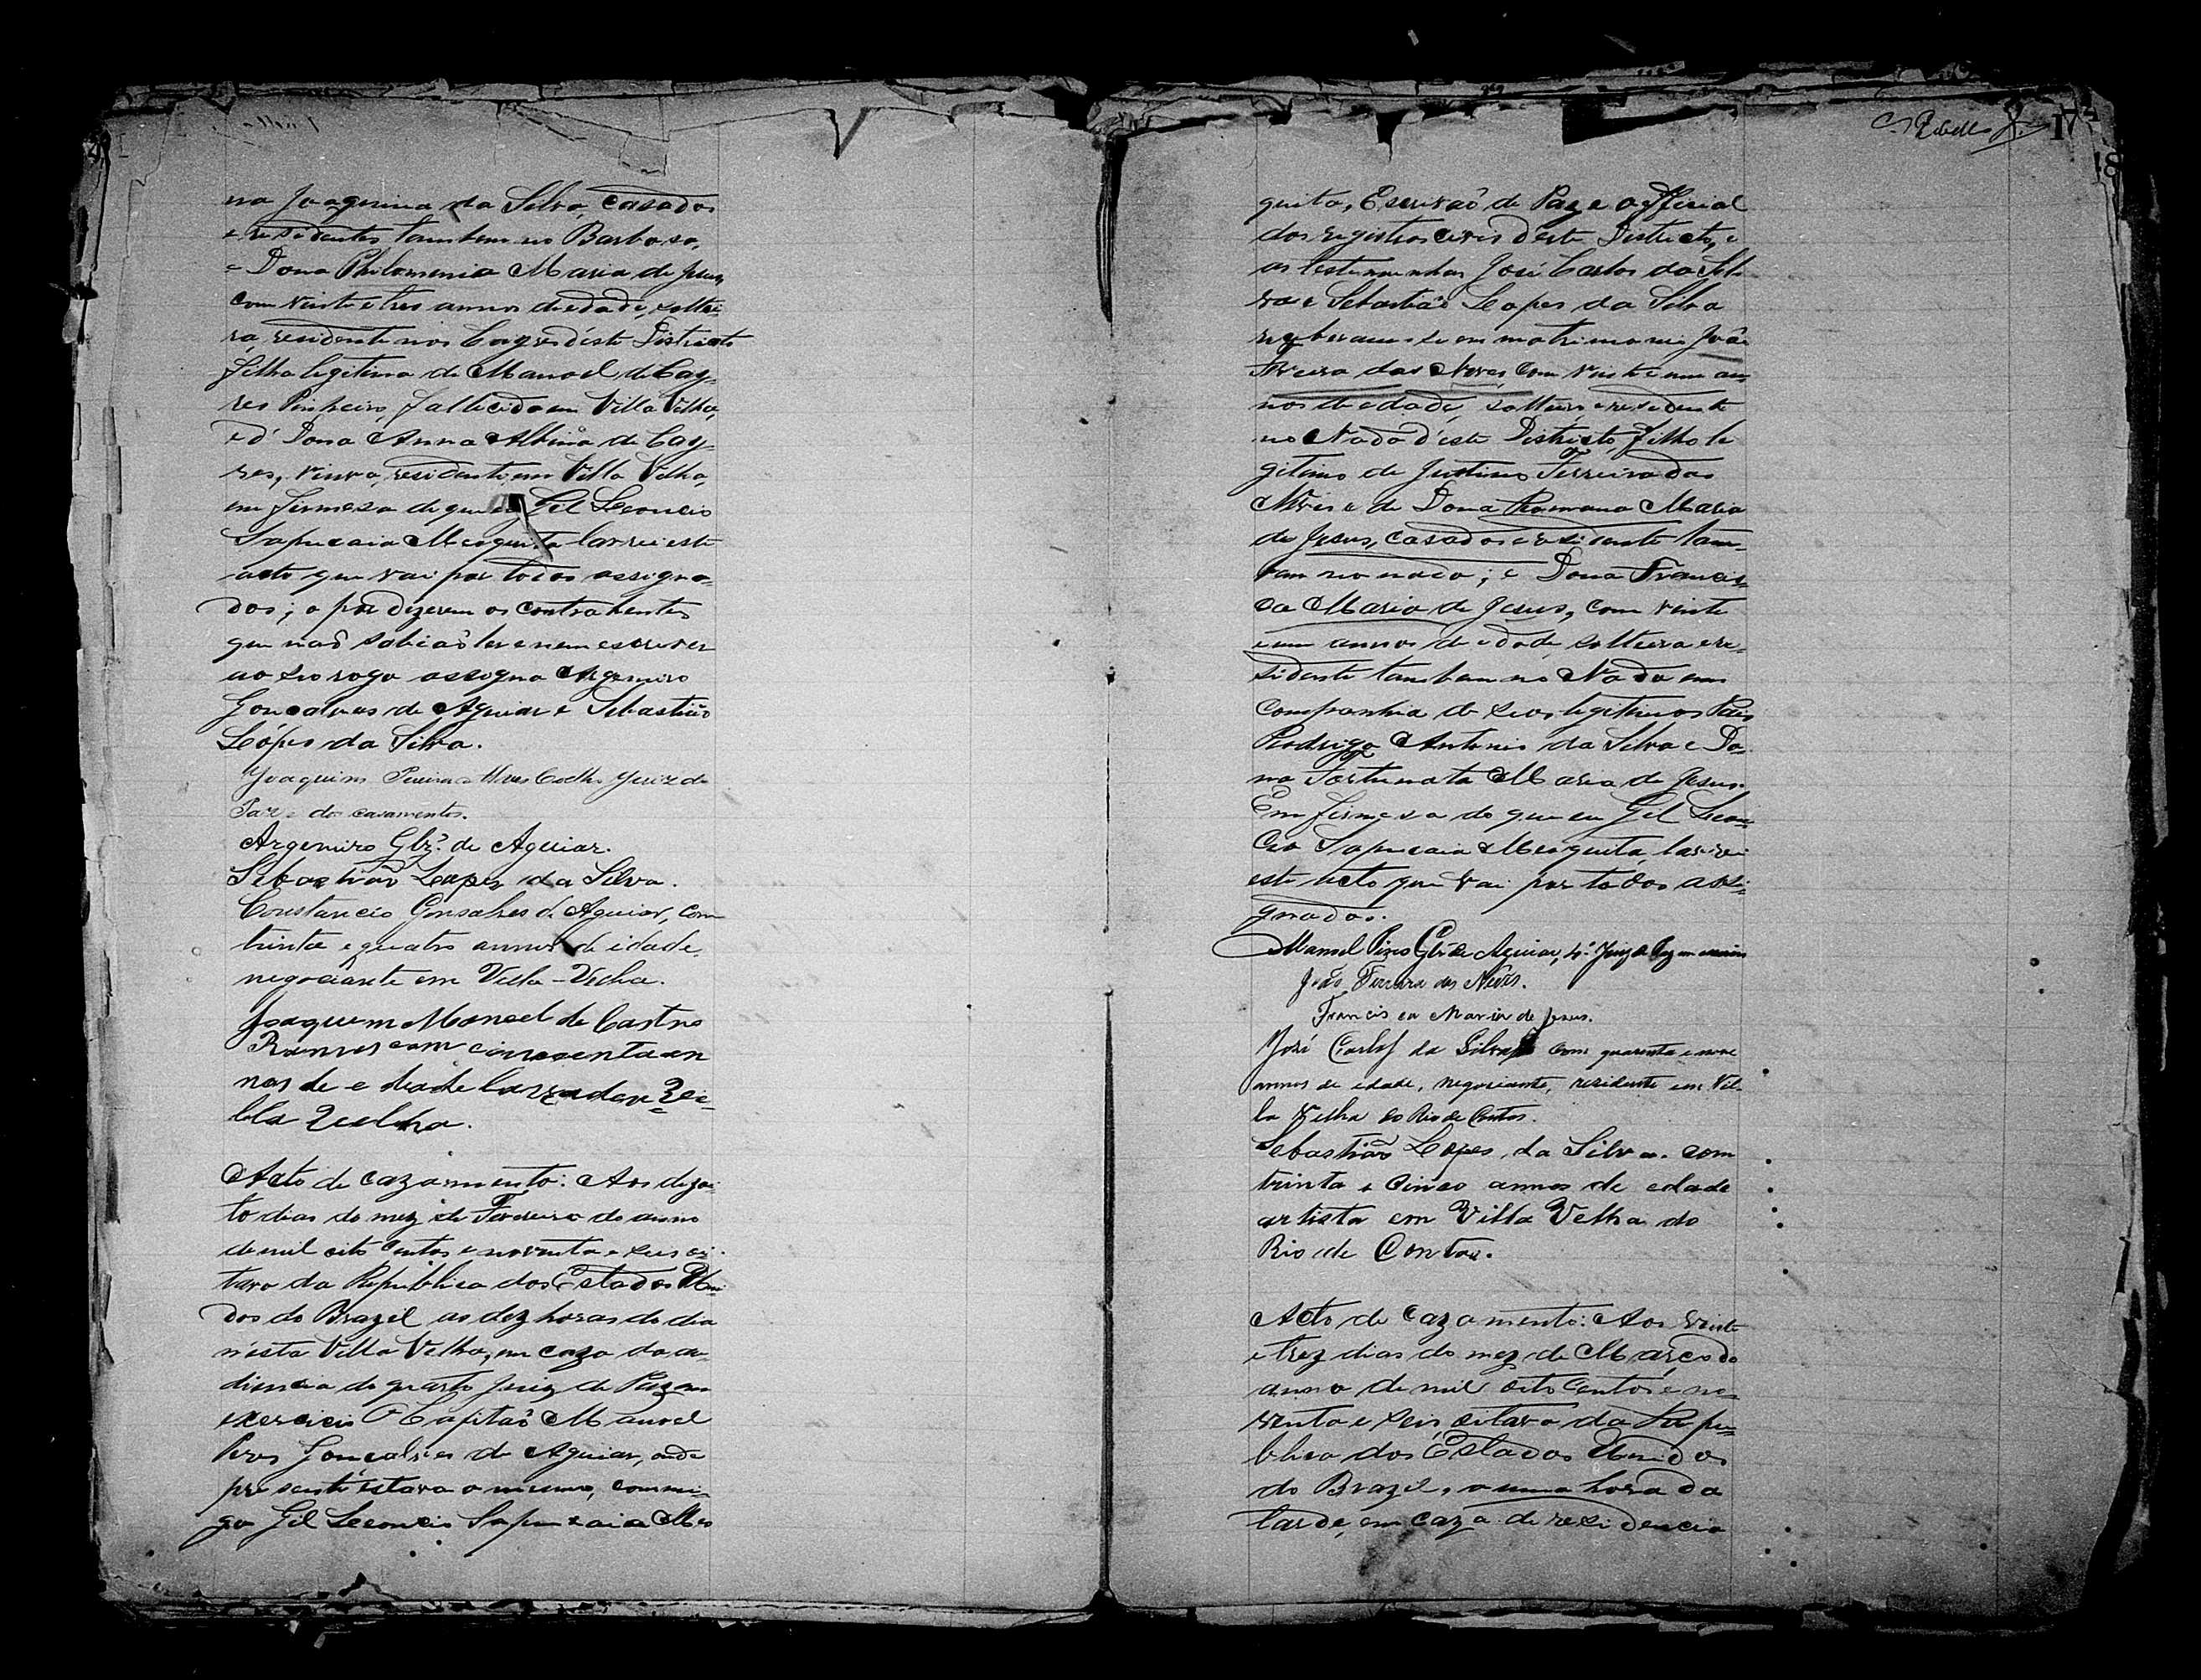 na Joaquina da Silva, casados
e residentes tambem no Barbosa,
e Dona Philomenia Maria de Jesus,
com vinte e tres annos de edade, soltei-
ra, residente nos Cayres d'este Districto
filha legitima de Manoel de Cay-
res Pinheiro, fallecido em Villa Velha,
e d' Dona Anna Albina de Cay-
res, viuva, residente em Villa Velha,
em firmesa do que eu Gil Leoncio
Sapucaia Mesquita lavrei este
acto que vai por todos assigna-
dos; e por dizerem os contrahentes
que naõ sabiaõ ler e nem escrever
ao seo rogo assigna Argemiro
Goncalves de Aguiar e Sebastião
Lópes da Silva.
Joaquim Pereira Coelho Juiz de
Paz e dos casamentos.
Argemiro Glz. de Aguiar.
Sebastião Lopes da Silva.
Constancio Gonsalves de Aguiar, com
trinta e quatro annos de idade,
negociante em Villa-Velha.
Joaquem Manoel de Castro
Ramos com cincoenta an
nos de e dade lavrador Vi-
lla Velha.
Acto de cazamento: Aos dezoi-
to dias do mez de Fevereiro do anno
de mil oito centos e noventa e seis oi-
tavo da Republica dos Estados Uni-
dos do Brazil as dez horas do dia
n'esta Villa Velha, em caza da au-
diencia do quarto Juiz de Paz em
exercicio O Capitaõ Manoel
Pires Goncalves de Aguiar, onde
presente estava o mesmo, commi-
go Gil Leoncio Sapucaia Mes
C. Rebello J. 17
18
quita, Escrivaõ de Paz e o official
dos registros civis d'este Districto, e
as testemunhas José Carlos da Sil
va e Sebastião Lopes da Silva
receberam se em matrimonio João
Ferreira das Neves, com vinte e um an
nos de edade, solteiro e residente
no Nado d'este Districto, filho le
gitimo de Justino Ferreira das
Neves e de Dona Romana Maria
de Jesus, casados e residente tam-
bem no nado; e Dona Francis-
ca Maria de Jesus, com vinte
e um annos de edade, solteira e re-
sidente tambem no Nado em
companhia de seos legitimos Pais
Rodrigo Antonio da Silva e Do-
na Fortunata Maria de Jesus.
Em firmesa do que eu Gil Leon
cio Sapucaia Mesquita, lavrei
este acto que vai por todos assi-
gnados.
Manoel Pires Glz de Aguiar, 4º Juiz de Paz em exercicio
João Ferreira das Neves.
Francis ca Maria de Jesus.
José Carlos da Silva com quarenta e nove
annos de edade, negociante, residente em Vil-
la Velha do Rio de Contas.
Sebastião Lopes da Silva. com
trinta e Cinco annos de edade
artista em Villa Velha do
Rio de Contas.
Acto de cazamento: Aos vinte
e trez dias do mez de Março do
anno de mil oito centos e no-
venta e seis, oitavo da Repu-
blica dos Estados Unidos
do Brazil, a uma hora da
tarde, em caza de residencia